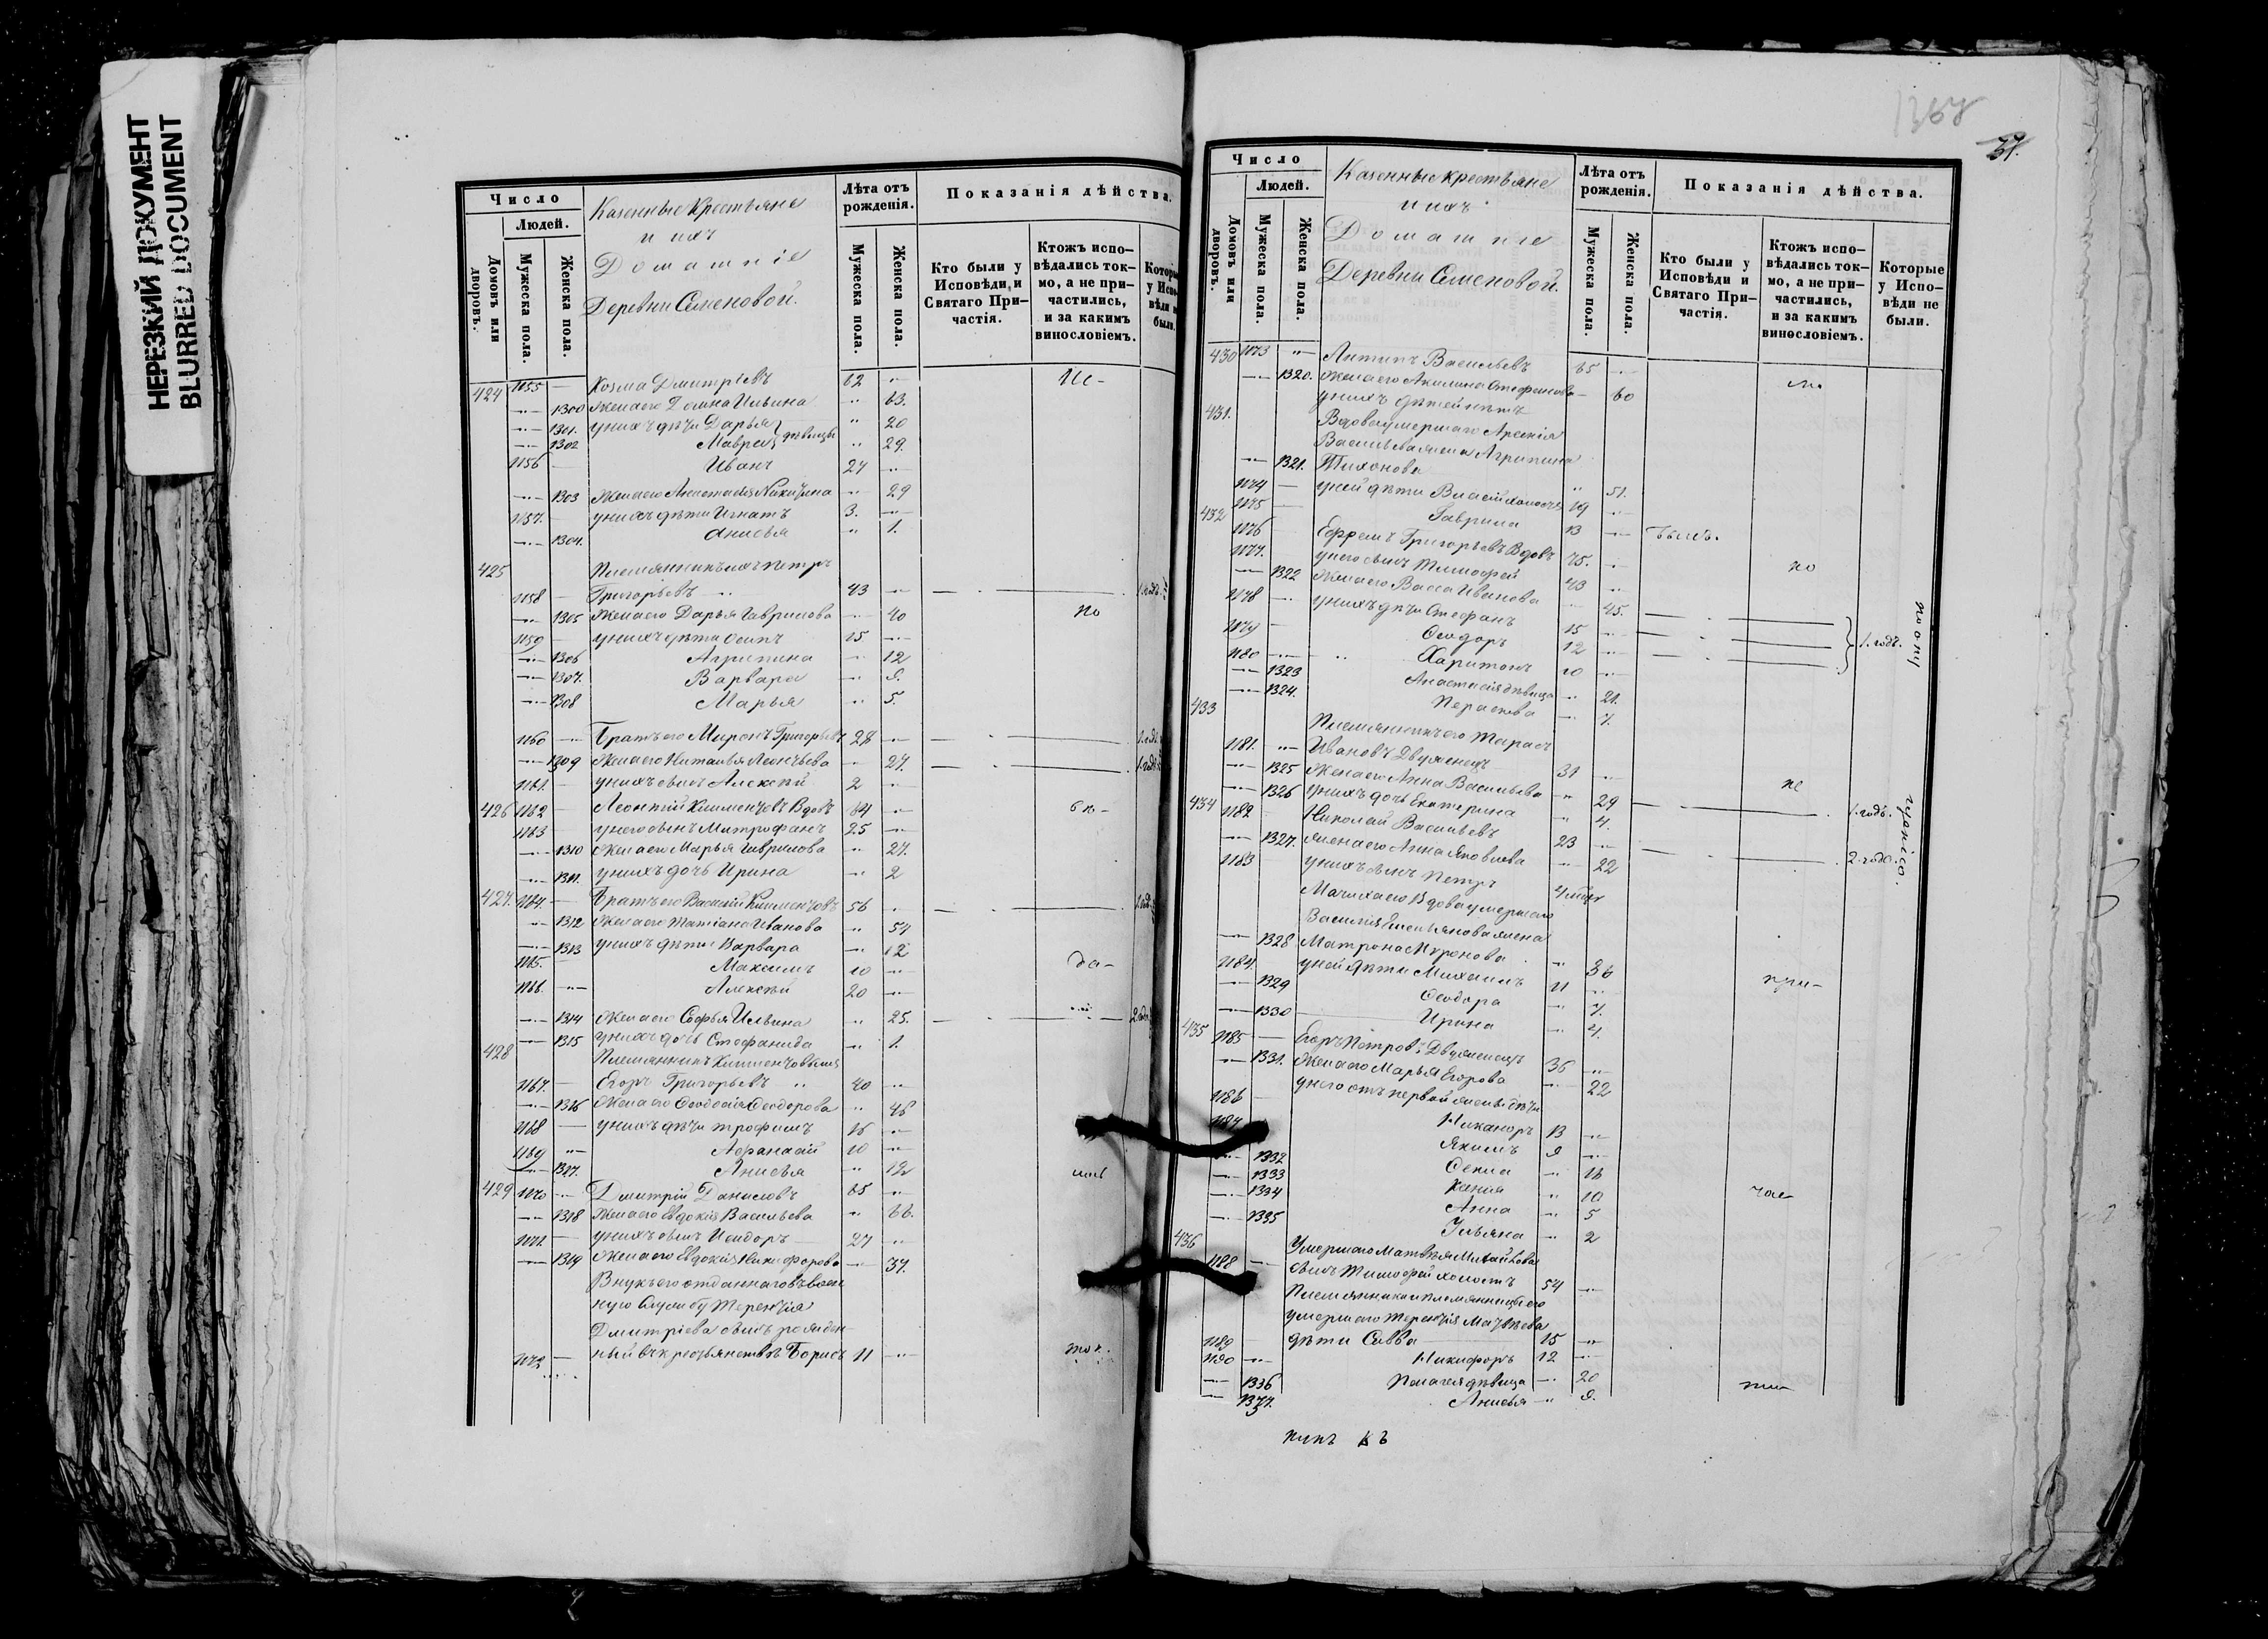 НЕРЕЗКИЙ ДОКУМЕНТ
BLURRED DOCUMENT
Число
Людей.
Домовъ или дворовъ.
Мужеска пола.
Женска пола.
Казенные крестьяне
и ихъ
Домашніе
Деревни Семеновой.
Лѣта отъ рожденія.
Мужеска пола.
Женска пола.
Показанія дѣйства.
Кто были у Исповѣди и Святаго Причастія.
Ктожъ испо-
вѣдались ток-
мо, а не при-
частились,
и за какимъ
винословіемъ.
Которые
у Испо-
вѣди не
были.
424 1155 — Козма Димитріевъ 62 „
— 1300 Жена его Домна Ильина „ 63.
— 1301. у нихъ дѣти Дарья „ 20
— 1302 Мавра дѣвицы „ 29.
1156 — Иванъ 27 „
— 1303 Жена его Анастасія Никитина „ 29
1157. — у нихъ дѣти Игнатъ 3. „
— 1304. Анисья „ 1.
425 Племянникъ ихъ Петръ
1158 — Григорьевъ 43 „ 1. годъ
— 1305 Жена его Дарья Гаврилова — 40 по
1159 — у нихъ дѣти Осипъ 15 —
— 1306 Агрипина — 12
— 1307. Варвара — 9.
— 1308 Марья „ 5.
1160 — Братъ его Миронъ Григорьевъ 28 „
— 1309 Жена его Наталья Леонтьева — 27.
1161. — у нихъ сынъ Алексѣй 2 „
426 1162 — Леонтій Климентовъ Вдовъ 84 „
1163 — у него сынъ Митрофанъ 25 —
— 1310 Жена его Марья Гаврилова „ 27.
— 1311. у нихъ дочь Ирина — 2
427. 1164. — Братъ его Василій Климентовъ 56 „
— 1312 Жена его Татіана Иванова „ 57
— 1313 у нихъ дѣти Варвара — 12
1165. — Максимъ 10 — да-
1166. — Алексѣй 20 —
— 1314 Жена его Софья Ильина „ 25.
— 1315 у нихъ дочь Стефанида „ 1.
428 Племянникъ Климентовъ
1167. — Егоръ Григорьевъ „ 40 —
— 1316 Жена его Ѳеодосія Ѳеодорова „ 46
1168 — у нихъ дѣти Трофимъ 16 „
1169 „ Афанасій 10 —
— 1317. Анисья „ 12
429 1170 — Дмитрій Даниловъ 65 „
— 1318 Жена его Евдокія Васильева „ 66.
1171. — у нихъ сынъ Исидоръ 27 „
— 1319 Жена его Евдокія Никифорова — 37.
Внукъ его отданнаго въ воен
ную службу Терентія
Дмитріева сынъ рожден
1172 — ный въ крестьянствѣ Борисъ 11 —
1367
37.
Число
Людей.
Домовъ или дворовъ.
Мужеска пола.
Женска пола.
Казенные крестьяне
и ихъ
Домашніе
Деревни Семеновой.
Лѣта отъ рожденія.
Мужеска пола.
Женска пола.
Показанія дѣйства.
Кто были у Исповѣди и Святаго Причастія.
Ктожъ испо-
вѣдались ток-
мо, а не при-
частились,
и за какимъ
винословіемъ.
Которые
у Испо-
вѣди не
были.
430 1173 „ Антипъ Васильевъ 65 „
— 1320. Жена его Акилина Стефанова — 60
у нихъ дѣтей нѣтъ
431. Вдова умершаго Арсенія
Васильева жена Агрипина
— 1321. Тихонова „ 51.
1174 — у ней дѣти Власій холостъ 19 „
1175 — Гаврила 13 — были.
432 1176 — Ефремъ Григорьевъ Вдовъ 75. „
1177. у него сынъ Тимофей 43 „ но
— 1322 Жена его Васса Иванова — 45.
1178 — у нихъ дѣти Стефанъ 15 „
1179 — Ѳеодоръ 12 „ 1. годъ.
1180 — Харитонъ 10 „
— 1323 Анастасія дѣвица „ 21.
— 1324. Пераскова — 7.
433 Племянникъ его Тарасъ
1181. „ Ивановъ Двуженецъ 31 „
— 1325 Жена его Анна Васильева „ 29 не
— 1326 у нихъ дочь Екатерина „ 4. 1. годъ.
434 1182 Николай Васильевъ 23 „
— 1327. Жена его Анна Яковлева — 22 2. года.
1183 у нихъ сынъ Петръ
Мачиха его Вдова умершаго
Василія Емельянова жена
— 1328 Матрона Миронова „ 36
1184. у ней дѣти Михаилъ 11 „ при-
— 1329 Ѳеодора „ 7.
— 1330 Ирина „ 4.
435 1185 — Егоръ Петровъ Двуженецъ 36 „
— 1331. Жена его Марья Егорова — 22
у него отъ первой жены дѣти
1186 — Никаноръ 13 „
1187 Якимъ 9 „
— 1332 Ѳекла „ 16
— 1333 Ксенія „ 10 час
— 1334 Анна „ 5
— 1335 Ульяна „ 2
436 Умершаго Матвѣя Михайлова
1188 — сынъ Тимофей холостъ 54 —
Племянники и племянницы его
умершаго Терентія Матвѣева
1189 дѣти Савва 15 „
1190 „ Никифоръ 12 —
— 1336 Пелагея дѣвица — 20
— 1337. Анисья „ 9.